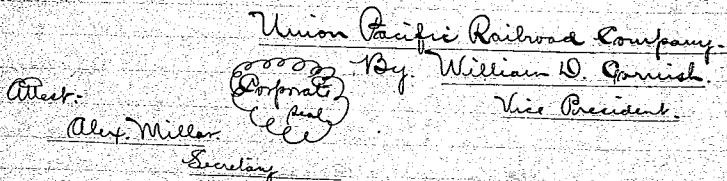 Union Pacific Railroad Company.
By. William D. Cornish.
Vice President.
Corporate
Seal
Attest:
Alex. Millar
Secretary